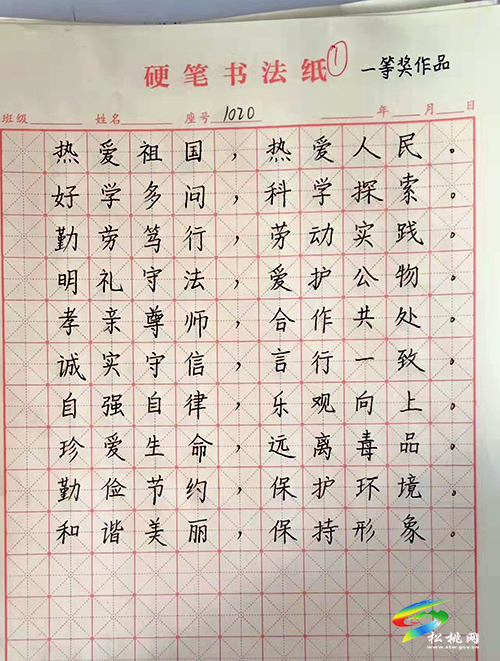 硬笔书法纸 1 一等奖作品
班级 姓名 座号 1020 年 月 日
热爱祖国，热爱人民。
好学多问，科学探索。
勤劳笃行，劳动实践。
明礼守法，爱护公物。
孝亲尊师，合作共处。
诚实守信，言行一致。
自强自律，乐观向上。
珍爱生命，远离毒品。
勤俭节约，保护环境。
和谐美丽，保持形象。
松桃网
www.stw.gov.cn